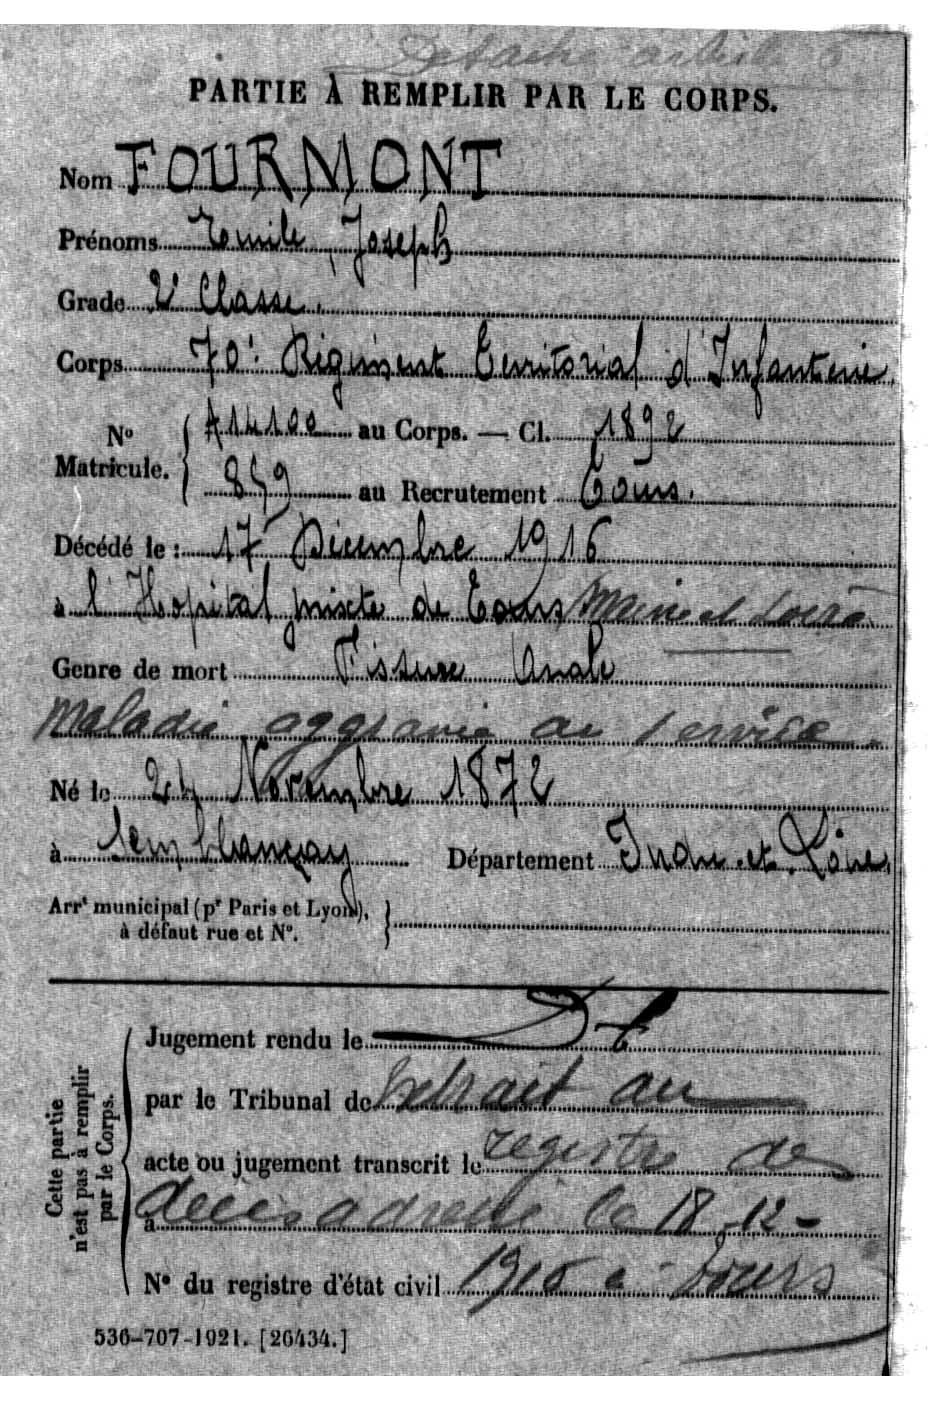 Détaché article 5
PARTIE À REMPLIR PAR LE CORPS.
Nom FOURMONT
Prénoms Emile, Joseph
Grade 2e Classe.
Corps 70e Régiment Territorial d'Infanterie.
No Matricule. A14100 au Corps. — Cl. 1892
859 au Recrutement Tours.
Décédé le : 17 Décembre 1916
à l'Hopital mixte de Tours Maine et Loire
Genre de mort Fissure Anale
Maladie aggravée au service.
Né le 24 Novembre 1872
à Semblançay Département Indre et Loire.
Arrt municipal (pr Paris et Lyon),
à défaut rue et No.
Cette partie n'est pas à remplir par le Corps.
Jugement rendu le
par le Tribunal de Extrait au
acte ou jugement transcrit le registre de
à décès adressé le 18-12-
No du registre d'état civil 1916 à Tours
536-707-1921. [26434.]